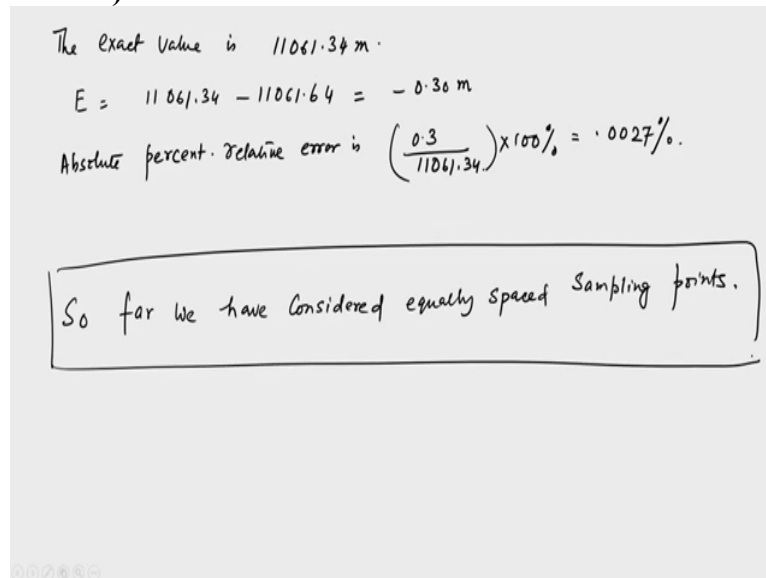 The exact value is 11061.34 m.
E = 11061.34 - 11061.64 = - 0.30 m
Absolute percent. relative error is (0.3 / 11061.34.) x 100% = .0027%.
So far we have Considered equally spaced Sampling points.